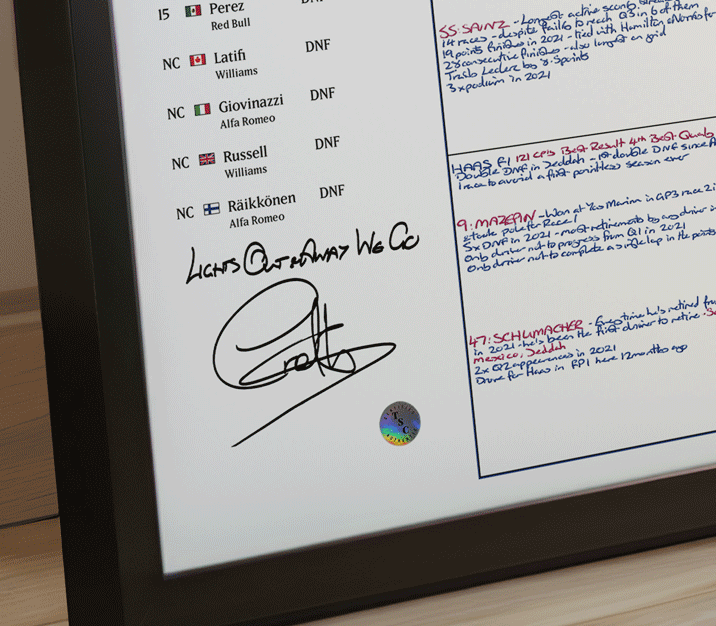 15 Perez DNF
Red Bull
NC Latifi DNF
Williams
NC Giovinazzi DNF
Alfa Romeo
NC Russell DNF
Williams
NC Räikkönen DNF
Alfa Romeo
LIGHTS OUT AND AWAY WE GO
Crofty
TSC
55: SAINZ - Longest active scoring streak
14 races - despite failing to reach Q3 in 6 of them
19 points finishes in 2021 - tied with Hamilton & Norris for
consecutive finishes - also longest on grid
Trails Leclerc by points
3 x podium in 2021
HAAS F1 121 GPs Best Result 4th Best Qualy
Double DNF in Jeddah - 1st double DNF since
1 race to avoid a first pointless season ever
9: MAZEPIN - Won at Yas Marina in GP3 race 2
& took pole for Race 1
5x DNF in 2021 - most retirements by any driver
Only driver not to progress from Q1 in 2021
Only driver not to complete a single lap in the points
47: SCHUMACHER - Every time he's retired from
in 2021 - he's been the first driver to retire -
Mexico, Jeddah
2x Q2 appearances in 2021
Drove for Haas in FP1 here 12 months ago